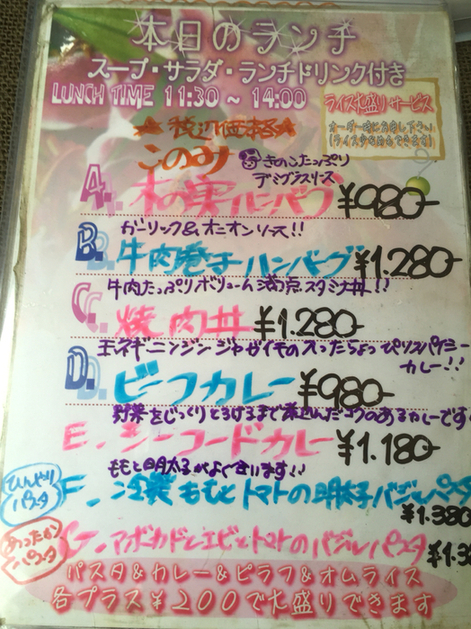 本日のランチ
スープ・サラダ・ランチドリンク付き
LUNCH TIME 11:30 ~ 14:00
ライス大盛りサービス
オーダー時にお申し下さい
(ライスのみできます)
★税込価格★
このみ
きのこたっぷり
デミグラスソース
A. 木の実ハンバーグ ¥980-
ガーリック&オニオンソース!!
B. 牛肉巻きハンバーグ ¥1.280-
牛肉たっぷりボリューム満点スタミナ丼!!
C. 焼肉丼 ¥1.280-
玉ネギニンジンジャガイモの入ったちょっぴりスパイシー
カレー!!
D. ビーフカレー ¥980-
野菜をじっくりとろけるまで煮込んだコクのあるカレーです
E. シーフードカレー ¥1.180-
ももと明太子がよく合います!!
ひんやり
パスタ
F. 冷製 ももとトマトの明太子バジルパスタ
¥1.380-
あったか
パスタ
G. アボカドとエビとトマトのバジルパスタ
パスタ&カレー&ピラフ&オムライス
各プラス¥200で大盛りできます